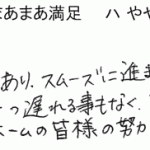 まあまあ満足　ハ やや
あり、スムーズに進ま
っ遅れる事もなく、
ホームの皆様の努力